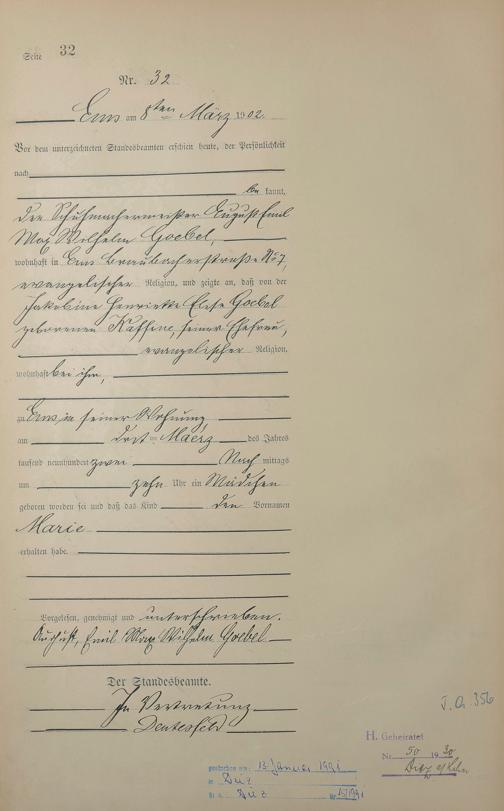 Seite 32
Nr. 32
Ems am 8ten März 1902.
Vor dem unterzeichneten Standesbeamten erschien heute, der Persönlichkeit
nach
be kannt,
der Schuhmachermeister August Emil
Max Wilhelm Goebel,
wohnhaft in Ems Braubacherstraße No 7,
evangelischer Religion, und zeigte an, daß von der
Jakobine Henriette Elise Goebel
geborenen Kaffine, seiner Ehefrau,
evangelischer Religion,
wohnhaft bei ihm,
zu Ems in seiner Wohnung
am März des Jahres
tausend neunhundert zwei Nach mittags
um zehn Uhr ein Mädchen
geboren worden sei und daß das Kind den Vornamen
Marie
erhalten habe.
Vorgelesen, genehmigt und unterschrieben.
August, Emil Max Wilhelm Goebel
Der Standesbeamte.
In Vertretung
J. A. 356
H. Geheiratet
Nr. 50 1930
Diez a/Lahn
gestorben am: 13. Januar 1991
in Diez
St. A. Diez Nr. 15/1991